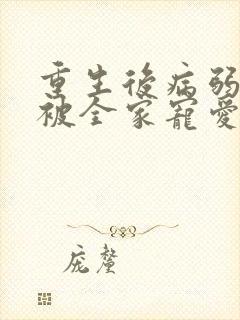 重生後病弱
被全家寵愛
庞鳌